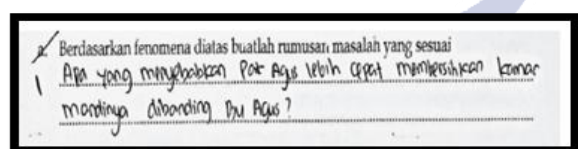 a. Berdasarkan fenomena diatas buatlah rumusan masalah yang sesuai
1 Apa yang menyebabkan Pak Agus lebih cepat membersihkan kamar
mandinya dibanding Bu Agus?